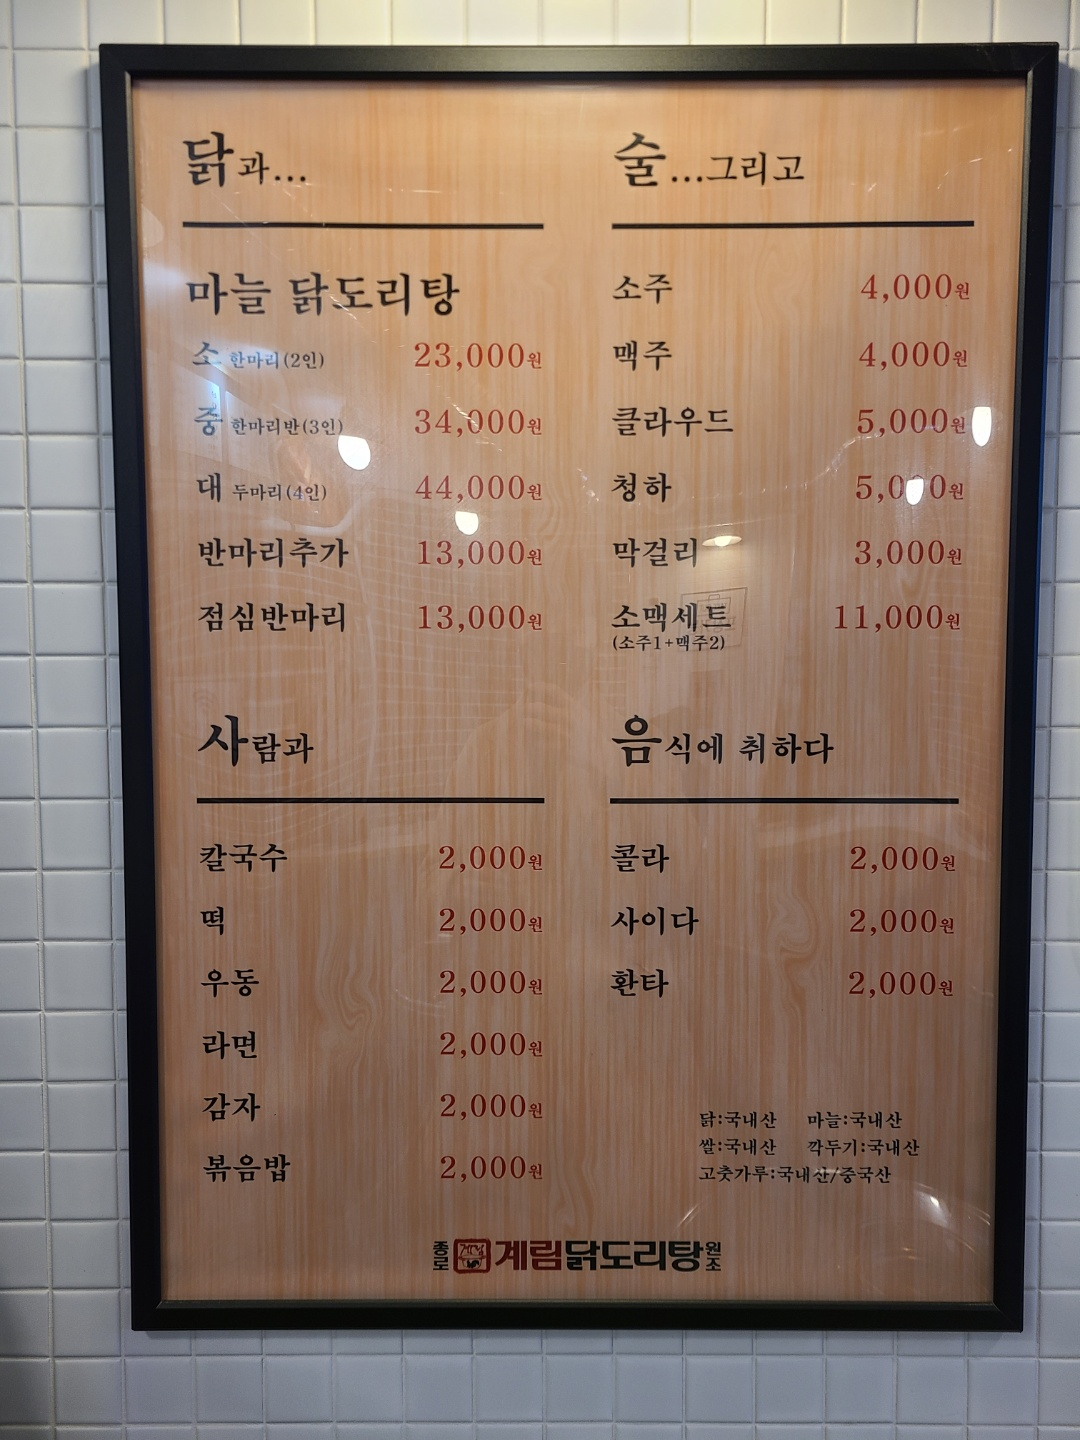 닭과...
마늘 닭도리탕
소 한마리(2인) 23,000원
중 한마리반(3인) 34,000원
대 두마리(4인) 44,000원
반마리추가 13,000원
점심반마리 13,000원
술...그리고
소주 4,000원
맥주 4,000원
클라우드 5,000원
청하 5,000원
막걸리 3,000원
소맥세트 11,000원
(소주1+맥주2)
사람과
칼국수 2,000원
떡 2,000원
우동 2,000원
라면 2,000원
감자 2,000원
볶음밥 2,000원
음식에 취하다
콜라 2,000원
사이다 2,000원
환타 2,000원
닭:국내산 마늘:국내산
쌀:국내산 깍두기:국내산
고춧가루:국내산/중국산
종로 계림닭도리탕 원조